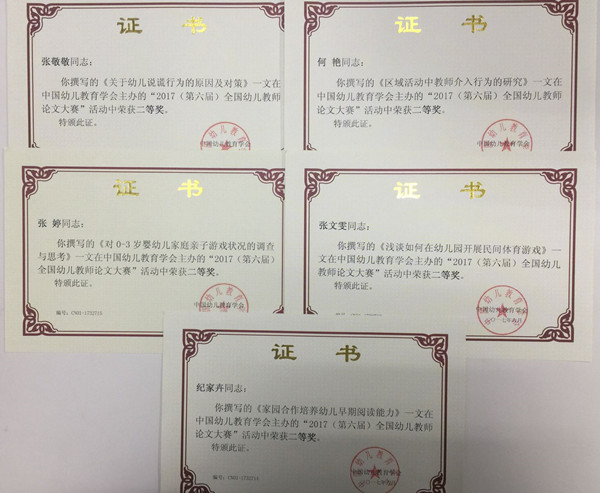 证 书
张敬敬同志：
你撰写的《关于幼儿说谎行为的原因及对策》一文在
中国幼儿教育学会主办的“2017（第六届）全国幼儿教师
论文大赛”活动中荣获二等奖。
特颁此证。
中国幼儿教育学会
证 书
何 艳同志：
你撰写的《区域活动中教师介入行为的研究》一文在
中国幼儿教育学会主办的“2017（第六届）全国幼儿教师
论文大赛”活动中荣获二等奖。
特颁此证。
中国幼儿教育学会
证 书
张 婷同志：
你撰写的《对 0-3 岁婴幼儿家庭亲子游戏状况的调查
与思考》一文在中国幼儿教育学会主办的“2017（第六届）
全国幼儿教师论文大赛”活动中荣获二等奖。
特颁此证。
中国幼儿教育学会
证 书
张文雯同志：
你撰写的《浅谈如何在幼儿园开展民间体育游戏》一
文在中国幼儿教育学会主办的“2017（第六届）全国幼儿
教师论文大赛”活动中荣获二等奖。
特颁此证。
中国幼儿教育学会
证 书
纪家卉同志：
你撰写的《家园合作培养幼儿早期阅读能力》一文在
中国幼儿教育学会主办的“2017（第六届）全国幼儿教师
论文大赛”活动中荣获二等奖。
特颁此证。
中国幼儿教育学会